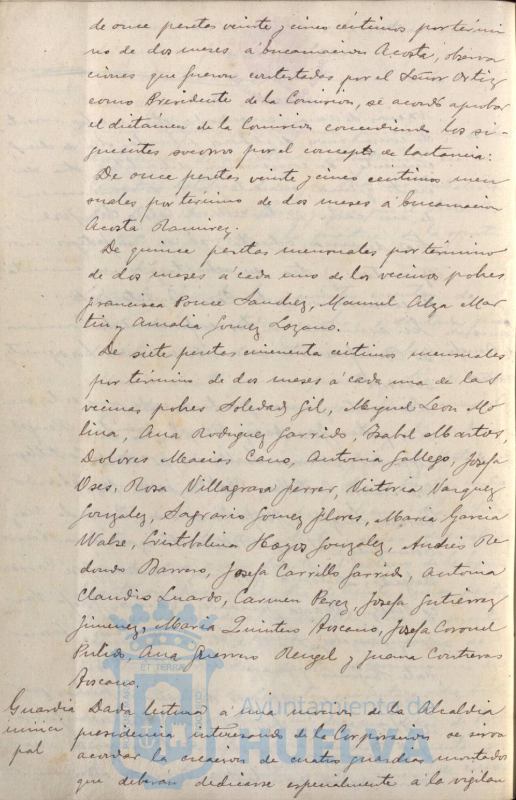 de once pesetas veinte y cinco céntimos por térmi
no de dos meses á Encarnacion Acosta, observa
ciones que fueron contestadas por el Señor Ortiz
como Presidente de la Comision, se acordó aprobar
el dictámen de la Comision concediendo los si-
guientes socorros por el concepto de lactancia:
De once pesetas veinte y cinco centimos men
suales por término de dos meses á Encarnacion
Acosta Ramirez.
De quince pesetas mensuales por término
de dos meses á cada uno de los vecinos pobres
Francisca Ponce Sanchez, Manuel Alza Mar
tin y Amalia Gomez Lozano.
De siete pesetas cincuenta céntimos mensuales
por término de dos meses á cada una de las
vecinas pobres Soledad Gil, Miguel Leon Mo
lina, Ana Rodriguez Garrido, Isabel Martos,
Dolores Macias Cano, Antonia Gallego, Josefa
Oses, Rosa Villagrasa Ferrer, Victoria Vazquez
Gonzalez, Sagrario Gomez Flores, Maria Garcia
Walse, Cristobalina Hoyos Gonzalez, Andrés Re
dondo Barrero, Josefa Carrillo Garrido, Antonia
Claudio Luardo, Carmen Perez, Josefa Gutiérrez
Jimenez, Maria Quintero Toscano, Josefa Coronel
Pulido, Ana Guerrero Rengel y Juana Contreras
Toscano.
Guardia
munici
pal
Dada lectura á una mocion de la Alcaldia
presidencia interesando de la Corporacion se sirva
acordar la creacion de cuatro guardias montados
que deberan dedicarse especialmente á la vigilan
ET TERRÆ
Ayuntamiento de
HUELVA